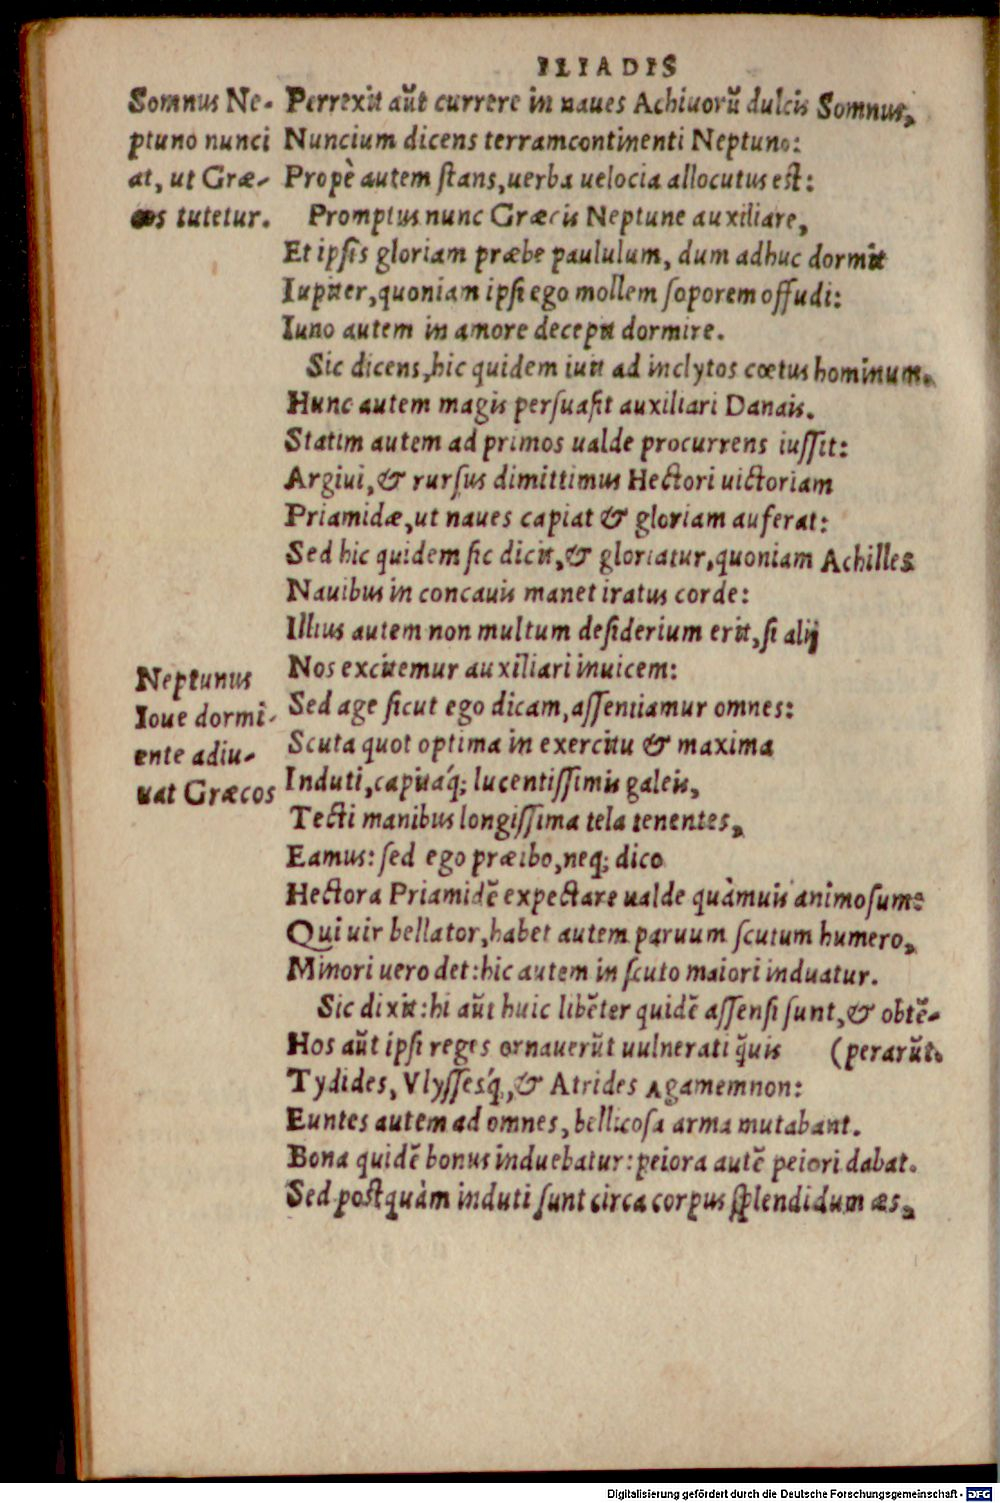 ILIADIS
Somnus Ne-
ptuno nunci
at, ut Græ-
cos tutetur.
Perrexit aūt currere in naues Achiuorū dulcis Somnus,
Nuncium dicens terramcontinenti Neptuno:
Propè autem stans, uerba uelocia allocutus est:
Promptus nunc Græcis Neptune auxiliare,
Et ipsis gloriam præbe paululum, dum adhuc dormit
Iupiter, quoniam ipsi ego mollem soporem offudi:
Iuno autem in amore decepit dormire.
Sic dicens, hic quidem iuit ad inclytos cœtus hominum.
Hunc autem magis persuasit auxiliari Danais.
Statim autem ad primos ualde procurrens iussit:
Argiui, & rursus dimittimus Hectori uictoriam
Priamidæ, ut naues capiat & gloriam auferat:
Sed hic quidem sic dicit, & gloriatur, quoniam Achilles
Nauibus in concauis manet iratus corde:
Illius autem non multum desiderium erit, si alij
Nos excitemur auxiliari inuicem:
Neptunus
Ioue dormi-
ente adiu-
uat Græcos
Sed age sicut ego dicam, assentiamur omnes:
Scuta quot optima in exercitu & maxima
Induti, capitaq́; lucentissimis galeis,
Tecti manibus longissima tela tenentes,
Eamus: sed ego præibo, neq; dico
Hectora Priamidē expectare ualde quàmuis animosum:
Qui uir bellator, habet autem paruum scutum humero,
Minori uero det: hic autem in scuto maiori induatur.
Sic dixit: hi aūt huic libēter quidē assensi sunt, & obtē-
Hos aūt ipsi reges ornauerūt uulnerati q̃uis (perarūt.
Tydides, Vlyssesq́;, & Atrides Agamemnon:
Euntes autem ad omnes, bellicosa arma mutabant.
Bona quidē bonus induebatur: peiora autē peiori dabat.
Sed postquàm induti sunt circa corpus splendidum æs,
Digitalisierung gefördert durch die Deutsche Forschungsgemeinschaft - DFG